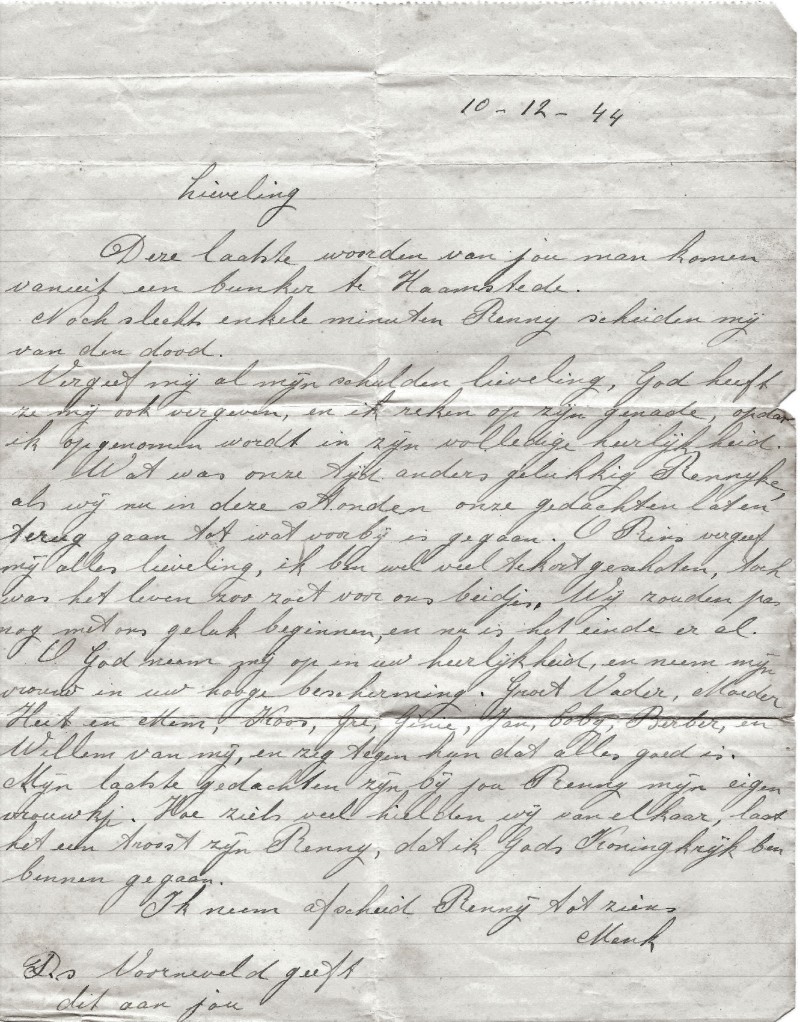 10 - 12 - 44
Lieveling
Deze laatste woorden van jou man komen
vanuit een bunker te Haamstede.
Noch slechts enkele minuten Renny scheiden mij
van den dood.
Vergeef mij al mijn schulden lieveling, God heeft
ze mij ook vergeven, en ik reken op zijn genade, opdat
ik opgenomen wordt in zijn volledige heerlijkheid.
Wat was onze tijd anders gelukkig Rennyke,
als wij nu in deze stonden onze gedachten laten
terug gaan tot wat voorbij is gegaan. O Rins vergeef
mij alles lieveling, ik ben wel veel tekort geschoten, toch
was het leven zoo zoet voor ons beidjes. Wij zouden pas
nog met ons geluk beginnen, en nu is het einde er al.
O God neem mij op in uw heerlijkheid, en neem mijn
vrouw in uw hooge bescherming. Groet Vader, Moeder
Heit en Mem, Koos, Jre, Genie, Jan, Coby, Berber, en
Willem van mij, en zeg tegen hun dat alles goed is.
Mijn laatste gedachten zijn bij jou Renny mijn eigen
vrouwkj. Hoe ziels veel hielden wij van elkaar, laat
het een troost zijn Renny, dat ik Gods Koningkrijk ben
binnen gegaan.
Ik neem afscheid Renny tot ziens
Menk
Ds Voorneveld geeft
dit aan jou